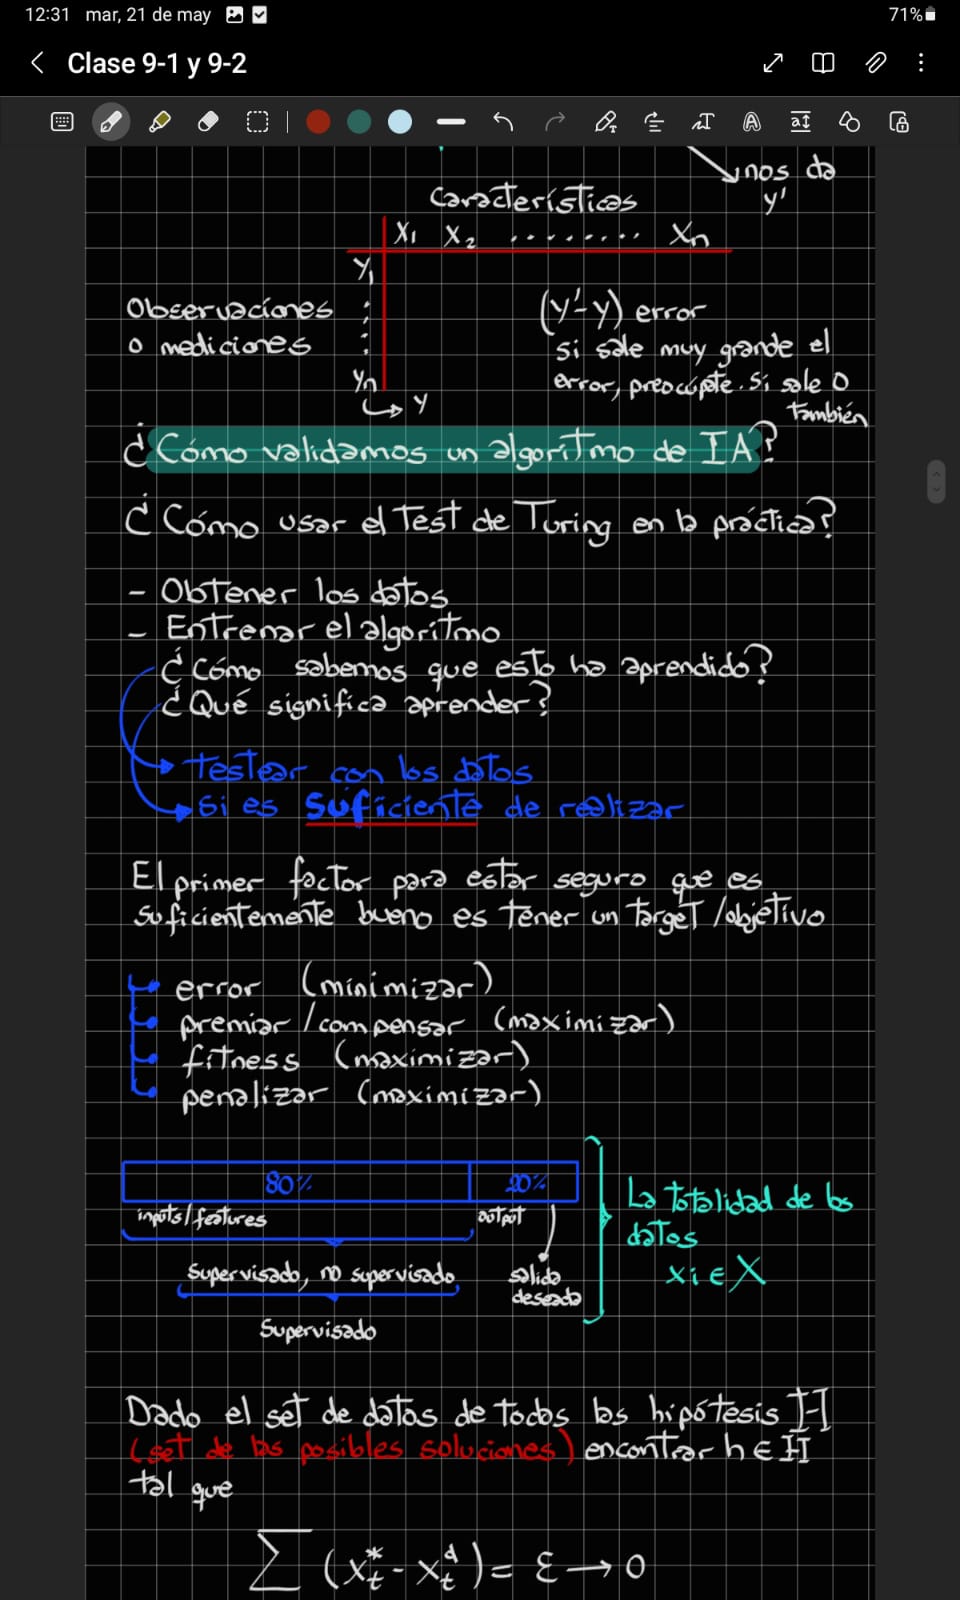 12:31 mar, 21 de may 71%
Clase 9-1 y 9-2
nos da
y'
Características
X1 X2 ........ Xn
Y1
Observaciones
o mediciones
Yn
Y
(y'-y) error
si sale muy grande el
error, preocúpate. Si sale 0
también
¿Cómo validamos un algoritmo de IA?
¿Cómo usar el Test de Turing en la práctica?
- Obtener los datos
- Entrenar el algoritmo
¿Cómo sabemos que esto ha aprendido?
¿Qué significa aprender?
Testear con los datos
Si es suficiente de realizar
El primer factor para estar seguro que es
suficientemente bueno es tener un target/objetivo
error (minimizar)
premiar/compensar (maximizar)
fitness (maximizar)
penalizar (maximizar)
80% 20%
inputs/features output
Supervisado, no supervisado
salida
deseada
Supervisado
La totalidad de los
datos
xi ∈ X
Dado el set de datos de todos las hipótesis H
(set de las posibles soluciones) encontrar h ∈ H
tal que
∑ (x_t^* - x_t^d) = ε → 0